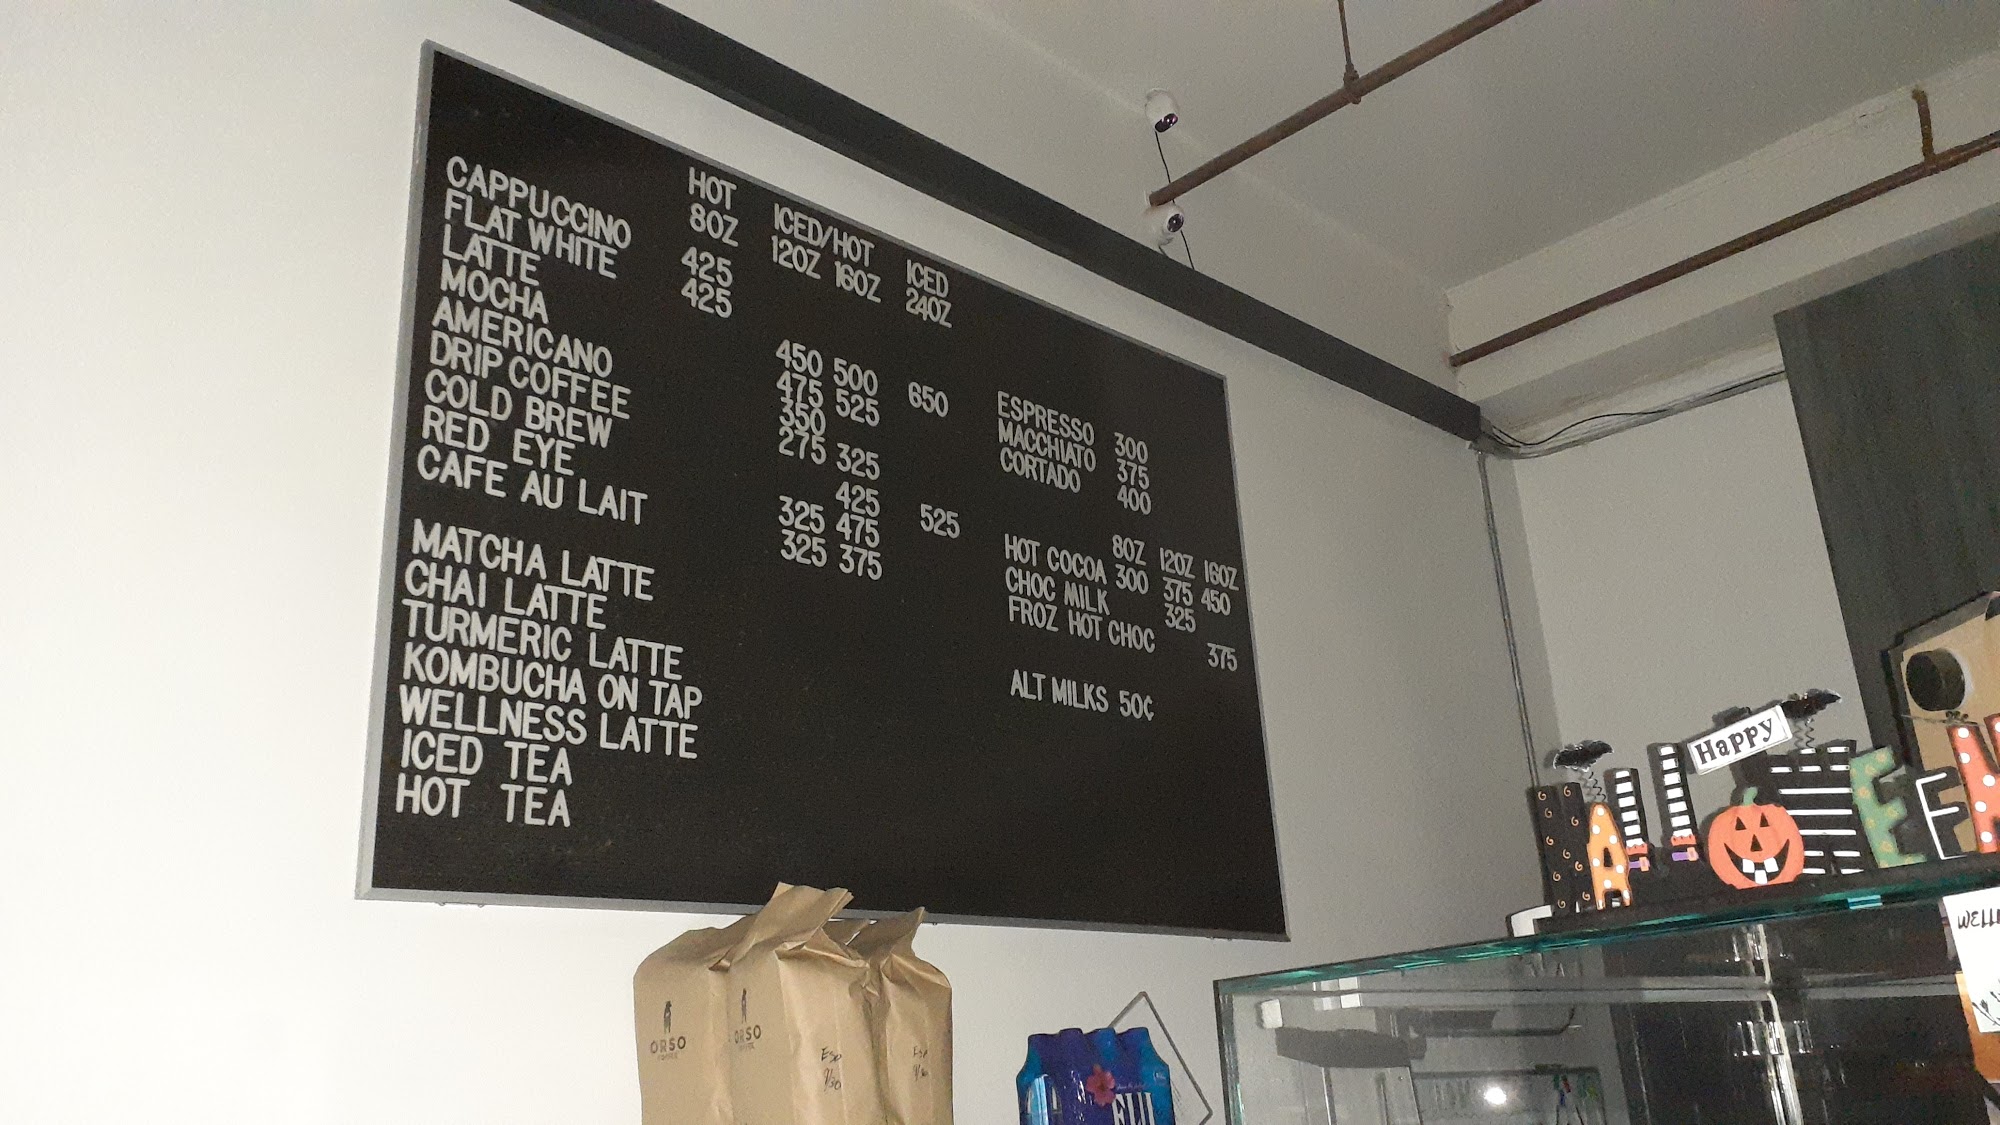 HOT ICED/HOT ICED
8OZ 12OZ 16OZ 24OZ
CAPPUCCINO 425
FLAT WHITE 425
LATTE 450 500 650
MOCHA 475 525
AMERICANO 350
DRIP COFFEE 275 325
COLD BREW 425 525
RED EYE 325 475
CAFE AU LAIT 325 375
MATCHA LATTE
CHAI LATTE
TURMERIC LATTE
KOMBUCHA ON TAP
WELLNESS LATTE
ICED TEA
HOT TEA
ESPRESSO 300
MACCHIATO 375
CORTADO 400
8OZ 12OZ 16OZ
HOT COCOA 300 375 450
CHOC MILK 325
FROZ HOT CHOC 375
ALT MILKS 50¢
Happy
HALLOWEEN
ORSO
COFFEE
ORSO
COFFEE
Esp
9/30
Esp
FIJI